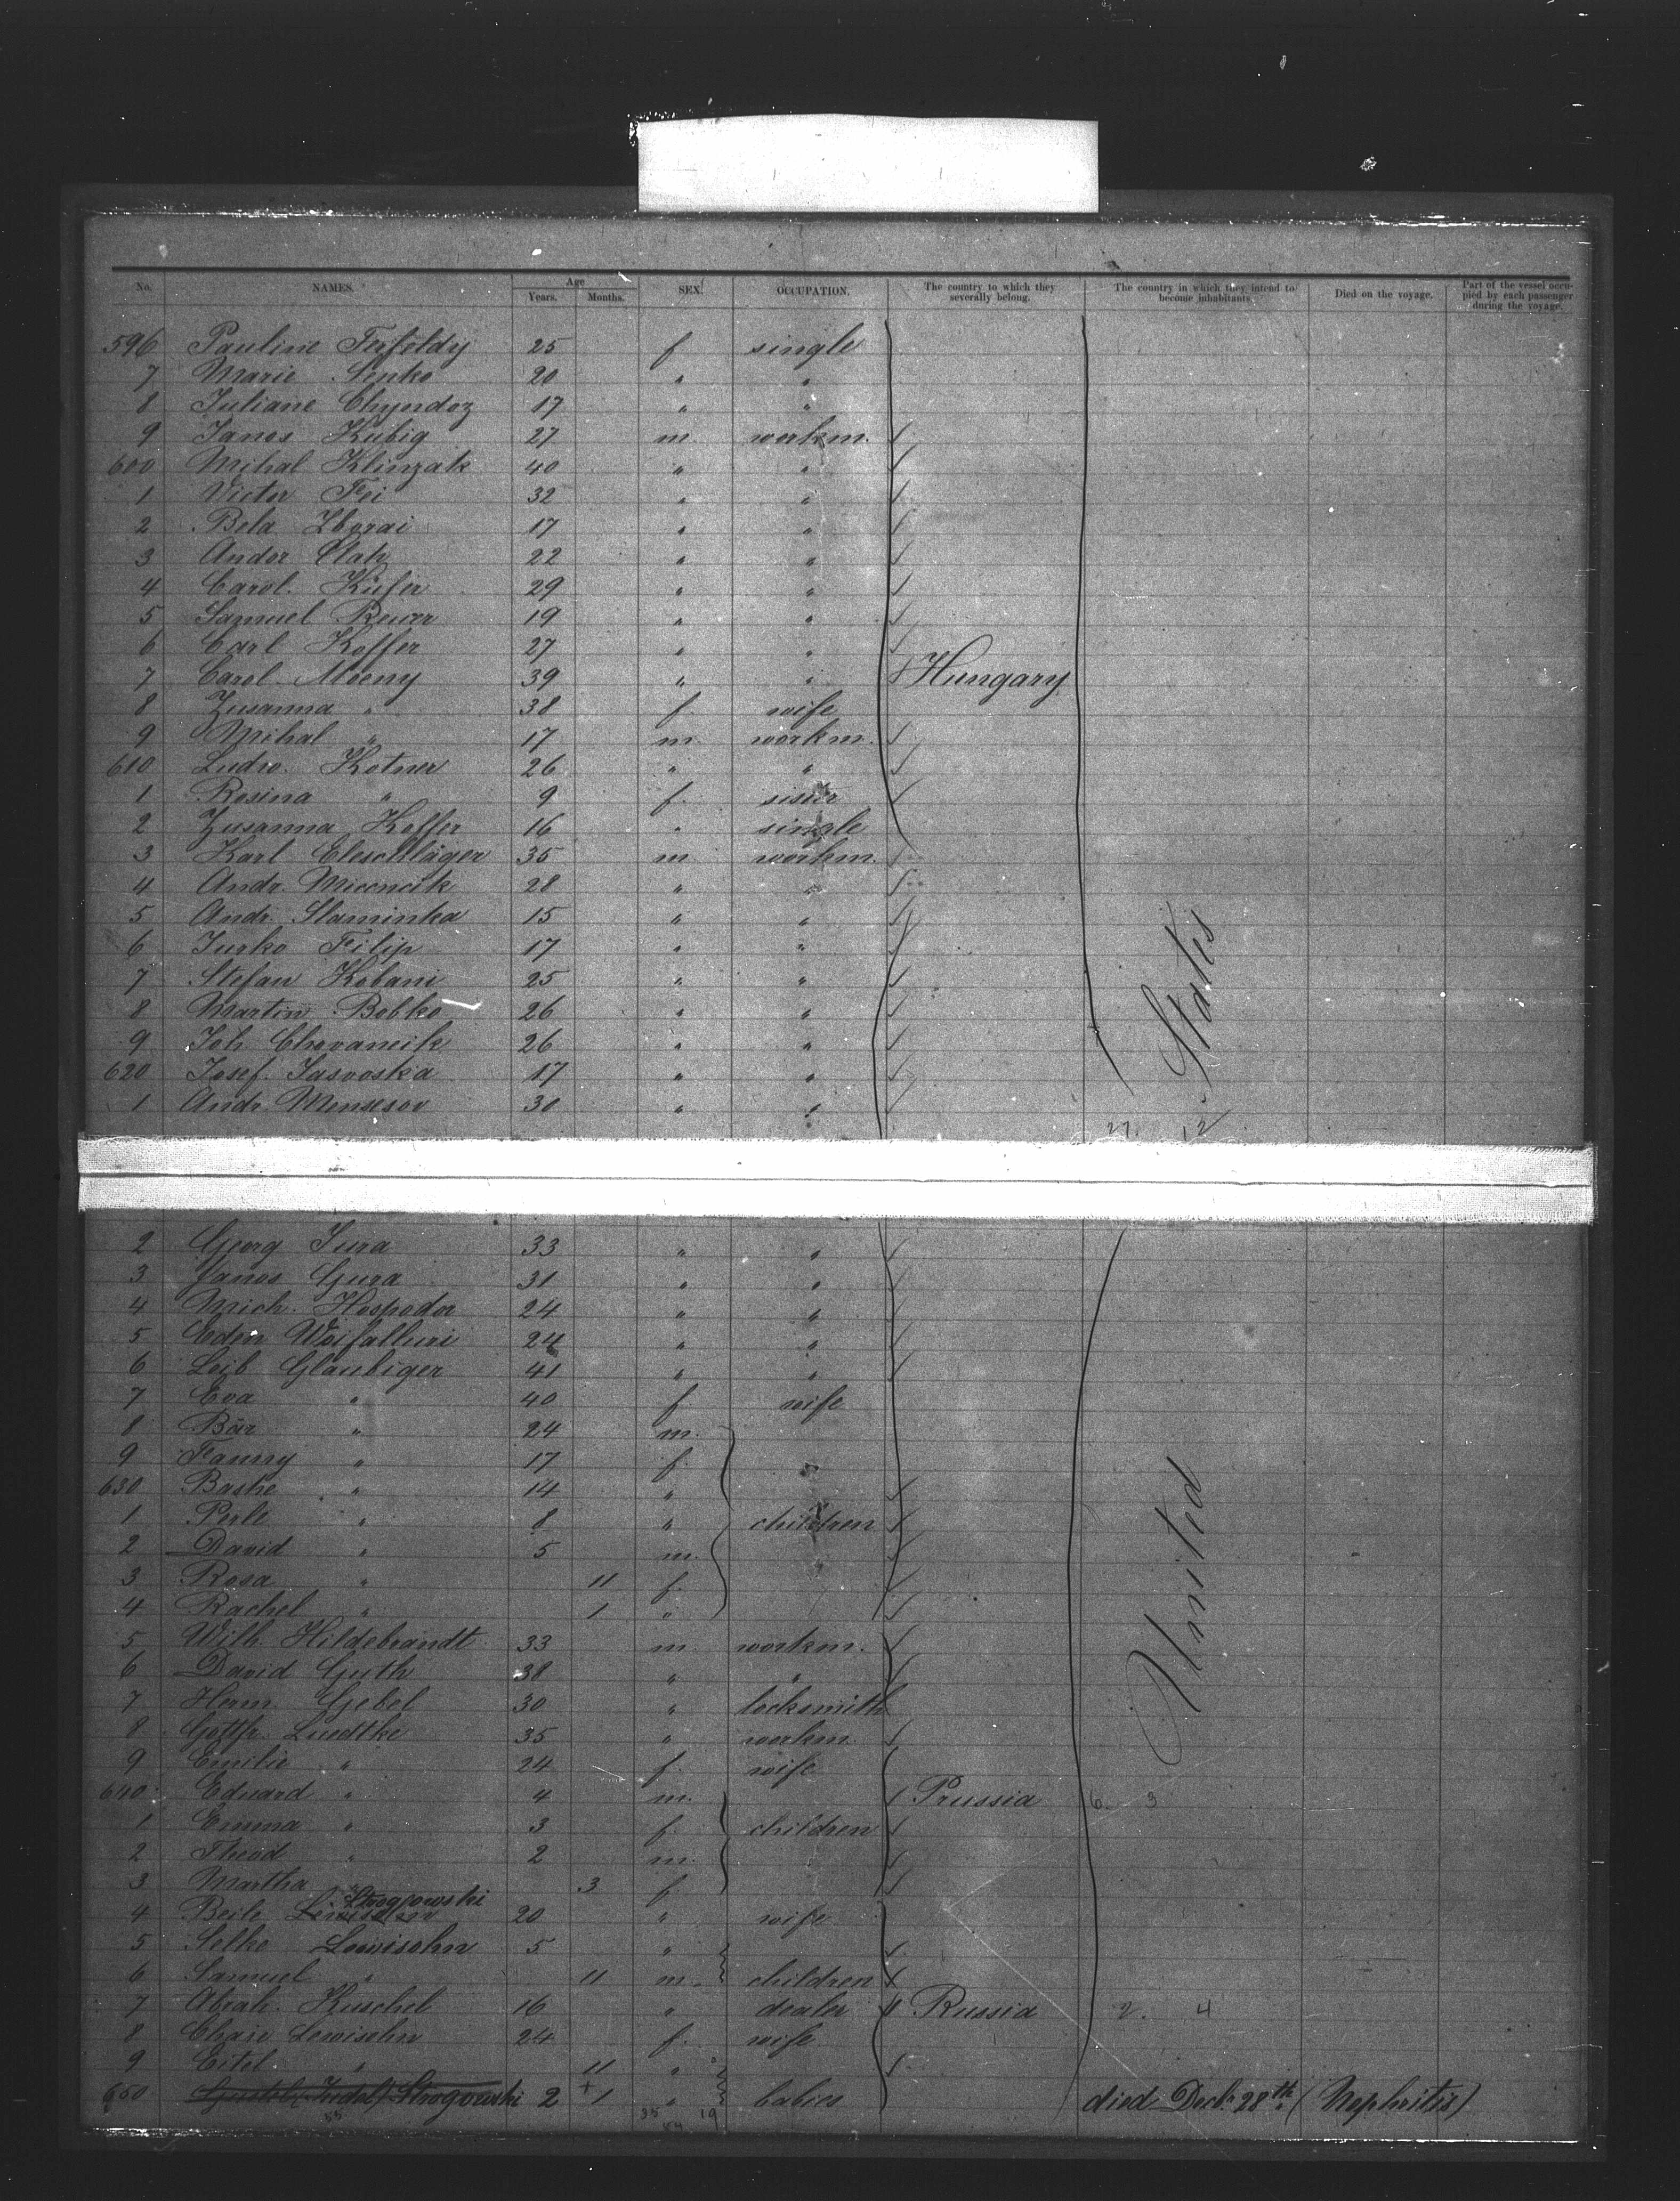 No. NAMES. Age Years. Months. SEX. OCCUPATION. The country to which they severally belong. The country in which they intend to become inhabitants. Died on the voyage. Part of the vessel occupied by each passenger during the voyage.
596 Pauline Terfeldy 25 f single
7 Marie Senko 20 " "
8 Juliane Chyndoz 17 " "
9 Janos Kubig 27 m workm.
600 Mihal Klinzak 40 " "
1 Victor Fei 32 " "
2 Bela Zborai 17 " "
3 Andor Olah 22 " "
4 Carol. Küfer 29 " "
5 Samuel Reuer 19 " "
6 Carl Koffer 27 " "
7 Carol Moeny 39 " " Hungary
8 Zusanna " 38 f. wife
9 Mihal " 17 m. workm.
610 Ludw. Kotner 26 " "
1 Rosina " 9 f. sister
2 Zusanna Koffer 16 " single
3 Karl Eleschläger 35 m workm.
4 Andr. Micencik 28 " "
5 Andr. Slaminka 15 " "
6 Jurko Filip 17 " "
7 Stefan Kobani 25 " "
8 Martin Bobko 26 " "
9 Joh. Chovancik 26 " "
620 Josef. Sasvoska 17 " "
1 Andr. Mensesov 30 " "
27. 12
2 Georg Jura 33 " "
3 Janos Gura 31 " "
4 Mich. Hospodor 24 " "
5 Eden Woifalluri 24 " "
6 Leib Glaubiger 41 " "
7 Eva " 40 f wife
8 Bär " 24 m.
9 Fanny " 17 f.
630 Bashe " 14 "
1 Perle " 8 " children
2 David " 5 m.
3 Rosa " 11 f.
4 Rachel " 1 "
United States
5 Wilh. Hildebrandt 33 m. workm.
6 David Guth 38 " "
7 Herm. Gebel 30 " locksmith
8 Gottfr. Luedtke 35 " workm.
9 Emilie " 24 f. wife
640 Eduard " 4 m. Prussia 6. 3
1 Emma " 3 f. children
2 Theod " 2 m.
3 Martha " 3 f.
Strogowski
4 Beile Lewisohn 20 " wife
5 Selko Lewisohn 5 "
6 Samuel " 11 m. children
7 Abrah. Kuschel 16 " dealer Russia 2. 4
8 Chaie Lewisohn 24 f. wife
9 Eitel " 11 "
650 (Judel) Strogowski 2 + 1 " babies died Decbr 28th (Nephritis)
55 35 19